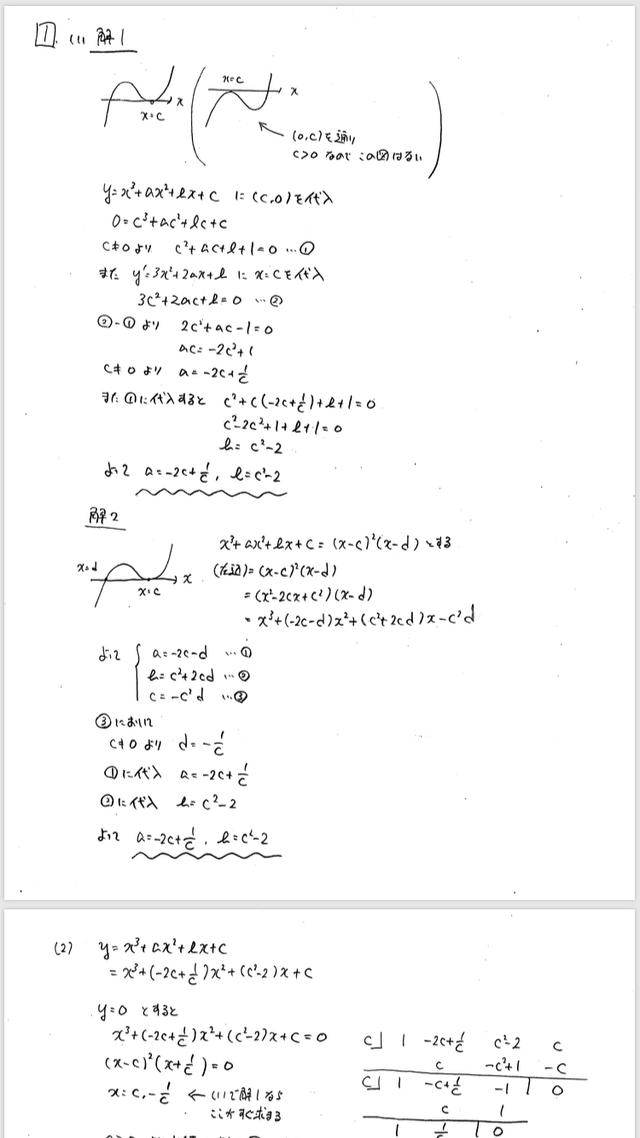 1 (1) 解1
x=c
x
x
x=c
(0,c)を通り
c>0 なので この図はない
y=x³+ax²+bx+c に (c,0)を代入
0=c³+ac²+bc+c
c≠0より c²+ac+b+1=0 …①
また y'=3x²+2ax+b に x=cを代入
3c²+2ac+b=0 …②
②-①より 2c²+ac-1=0
ac=-2c²+1
c≠0より a=-2c+1/c
また①に代入すると c²+c(-2c+1/c)+b+1=0
c²-2c²+1+b+1=0
b=c²-2
よって a=-2c+1/c, b=c²-2
解2
x³+ax²+bx+c=(x-c)²(x-d)とする
x=d
x
x=c
(右辺)=(x-c)²(x-d)
=(x²-2cx+c²)(x-d)
=x³+(-2c-d)x²+(c²+2cd)x-c²d
よって a=-2c-d …①
b=c²+2cd …②
c=-c²d …③
③において
c≠0より d=-1/c
①に代入 a=-2c+1/c
②に代入 b=c²-2
よって a=-2c+1/c, b=c²-2
(2) y=x³+ax²+bx+c
=x³+(-2c+1/c)x²+(c²-2)x+c
y=0 とすると
x³+(-2c+1/c)x²+(c²-2)x+c=0
(x-c)²(x+1/c)=0
x=c,-1/c ←(1)で解2なら
ここがすぐ求まる
c 1 -2c+1/c c²-2 c
c -c²+1 -c
c 1 -c+1/c -1 0
c 1
1 1/c 0